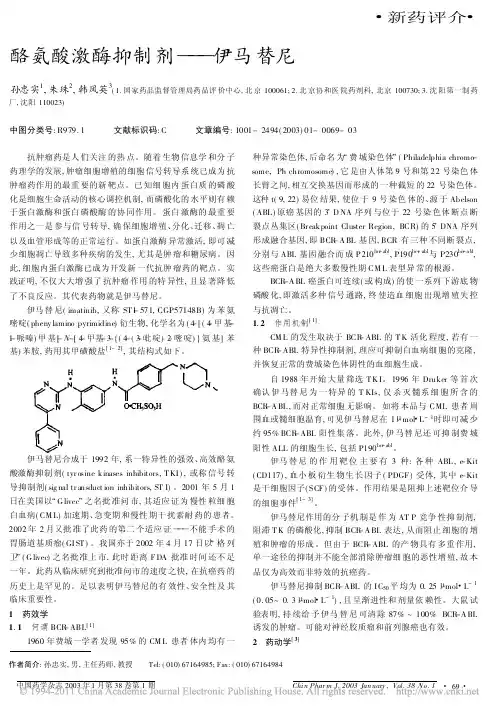 ·新药评介·
酪氨酸激酶抑制剂——伊马替尼
孙忠实1, 朱珠2, 韩凤英3(1. 国家药品监督管理局药品评价中心, 北京 100061; 2. 北京协和医院药剂科, 北京 100730; 3. 沈阳第一制药
厂, 沈阳 110023)
中图分类号: R979. 1 文献标识码: C 文章编号: 1001- 2494(2003) 01- 0069- 03
抗肿瘤药是人们关注的热点。随着生物信息学和分子
药理学的发展, 肿瘤细胞增殖的细胞信号转导系统已成为抗
肿瘤药作用的最重要的新靶点。已知细胞内蛋白质的磷酸
化是细胞生命活动的核心调控机制, 而磷酸化的水平则有赖
于蛋白激酶和蛋白磷酸酶的协同作用。蛋白激酶的最重要
作用之一是参与信号转导, 确保细胞增殖、分化、迁移、凋亡
以及血管形成等的正常运行。如蛋白激酶异常激活, 即可减
少细胞凋亡导致多种疾病的发生, 尤其是肿瘤和糖尿病。因
此, 细胞内蛋白激酶已成为开发新一代抗肿瘤药的靶点。实
践证明, 不仅大大增强了抗肿瘤作用的特异性, 且显著降低
了不良反应。其代表药物就是伊马替尼。
伊马替尼( imatinib, 又称 STI- 571, CGP57148B) 为苯氨
嘧啶( phenylamino pyrimidine) 衍生物, 化学名为( 4-[ ( 4-甲基-
1-哌嗪) 甲基]- N-[ 4-甲基-3-[ ( 4-( 3-吡啶)-2-嘧啶) ] 氨基] 苯
基) 苯胺, 药用其甲磺酸盐[ 1- 2] , 其结构如下。
H
N
H
N
N
N
O
N
N
·CH3SO3H
N
伊马替尼合成于 1992 年, 系一特异性的强效、高效酪氨
酸激酶抑制剂( tyrosine kinases inhibitors, TKI) , 或称信号转
导抑制剂( signal transduction inhibitors, STI) 。2001 年 5 月 1
日在美国以“ Glivec”之名批准问市, 其适应证为慢性粒细胞
白血病( CML) 加速期、急变期和慢性期干扰素耐药的患者。
2002 年 2 月又批准了此药的第二个适应证——不能手术的
胃肠道基质瘤(GIST) 。我国亦于 2002 年 4 月 17 日以“格列
卫”( Glivec) 之名批准上市, 此时距离 FDA 批准时间还不足
一年。此药从临床研究到批准问市的速度之快, 在抗癌药的
历史上是罕见的。足以表明伊马替尼的有效性、安全性及其
临床重要性。
1 药效学
1. 1 何谓 BCR-ABL[1]
1960 年费城一学者发现 95% 的 CML 患者体内均有一
种异常染色体, 后命名为“费城染色体”( Philadelphia chromo-
some, Ph chromosome) , 它是由人体第 9 号和第 22 号染色体
长臂之间, 相互交换基因而形成的一种截短的 22 号染色体。
这种 t( 9, 22) 易位结果, 使位于 9 号染色体的、源于 Abelson
( ABL) 原癌基因的 3′ DNA 序列与位于 22 号染色体断点断
裂点丛集区( Breakpoint Cluster Region, BCR) 的 5′ DNA 序列
形成融合基因, 即 BCR-ABL 基因, BCR 有三种不同断裂点,
分别与 ABL 基因融合而成 P210bcr-abl, P190bcr-abl 与 P230bcr-abl,
这些癌蛋白是绝大多数慢性期 CML 表型异常的根源。
BCR-ABL 癌蛋白可连续(或构成) 的使一系列下游底物
磷酸化, 即激活多种信号通路, 终使造血细胞出现增殖失控
与抗凋亡。
1. 2 作用机制[ 1]
CML 的发生取决于 BCR-ABL 的 TK 活化程度, 若有一
种 BCR-ABL 特异性抑制剂, 理应可抑制白血病细胞的克隆,
并恢复正常的费城染色体阴性的血细胞生成。
自 1988 年开始大量筛选 TKI。1996 年 Druker 等首次
确认伊马替尼为一特异的 TKIs, 仅杀灭髓系细胞所含的
BCR-ABL, 而对正常细胞无影响。如将本品与 CML 患者周
围血或髓细胞温育, 可见伊马替尼在 1 μmol•L- 1时即可减少
约 95% BCR-ABL 阳性集落。此外, 伊马替尼还可抑制费城
阳性 ALL 的细胞生长, 包括 P190bcr-abl。
伊马替尼的作用靶位主要有 3 种: 各种 ABL, c-Kit
( CD117) , 血小板衍生物生长因子( PDGF) 受体, 其中 c-Kit
是干细胞因子( SCF) 的受体。作用结果是阻抑上述靶位介导
的细胞事件[ 1- 3] 。
伊马替尼作用的分子机制是作为 ATP 竞争性抑制剂,
阻滞 TK 的磷酸化, 抑制 BCR-ABL 表达, 从而阻止细胞的增
殖和肿瘤的形成。但由于 BCR-ABL 的产物具有多重作用,
单一途径的抑制并不能全部消除肿瘤细胞的恶性增殖, 故本
品仅为高效而非特效的抗癌药。
伊马替尼抑制 BCR-ABL 的 IC50平均为 0. 25 μmol•L- 1
( 0. 05~ 0. 3 μmol•L- 1) , 且呈渐进性和剂量依赖性。大鼠试
验表明, 持续给予伊马替尼可消除 87% ~ 100% BCR-ABL
诱发的肿瘤。可能对神经胶质瘤和前列腺癌也有效。
2 药动学[ 3]
作者简介: 孙忠实, 男, 主任药师, 教授 Tel: ( 010) 67164985; Fax: ( 010) 67164984
中国药学杂志 2003 年 1 月第 38 卷第 1 期 Chin Pharm J, 2003 January, Vol. 38 No. 1 • 69 •
© 1994-2011 China Academic Journal Electronic Publishing House. All rights reserved. http://www.cnki.net